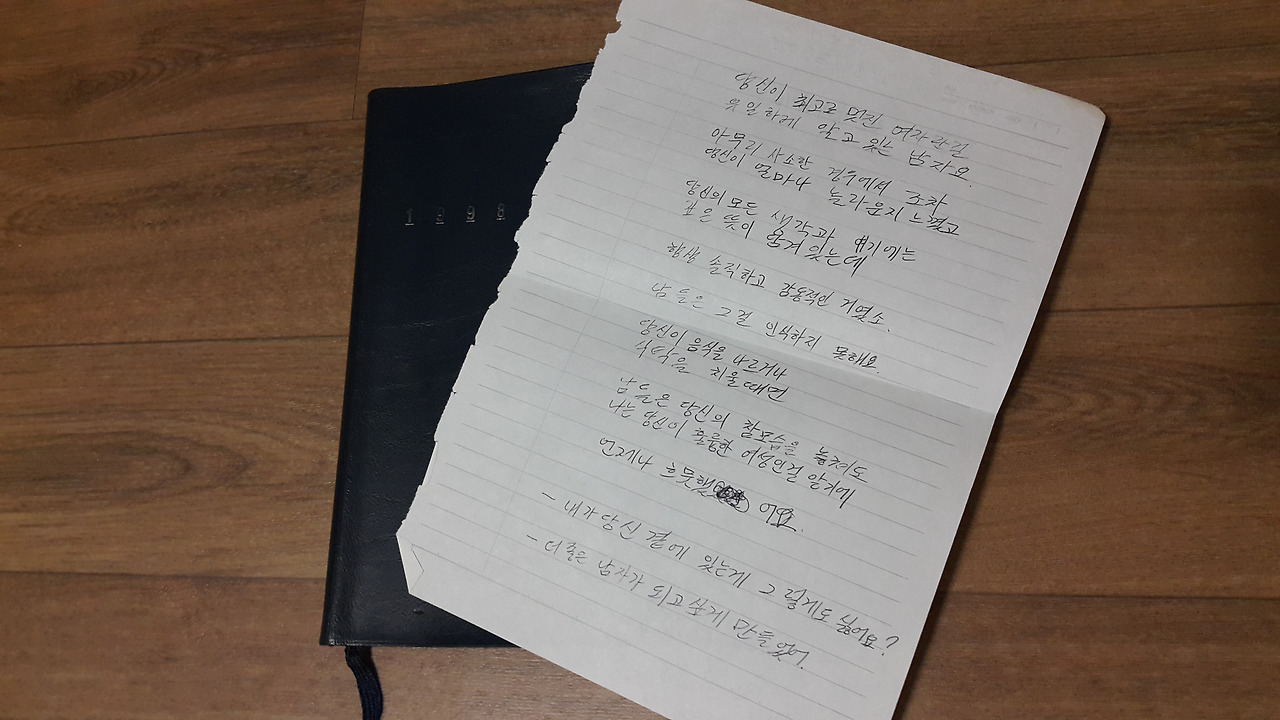 1998
당신이 최고로 멋진 여자란걸
유일하게 알고 있는 남자요.
아무리 사소한 경우에서 조차
당신이 얼마나 놀라운지 느꼈고
당신의 모든 생각과 얘기에는
깊은 뜻이 담겨 있는데
항상 솔직하고 감동적인 거였소.
남들은 그걸 인식하지 못해요.
당신이 음식을 나르거나
식탁을 치울때면
남들은 당신의 참모습을 놓쳐도
나는 당신이 훌륭한 여성인걸 알기에
언제나 흐뭇했 어요.
- 내가 당신 곁에 있는게 그렇게도 싫어요?
- 더 좋은 남자가 되고 싶게 만들었어.